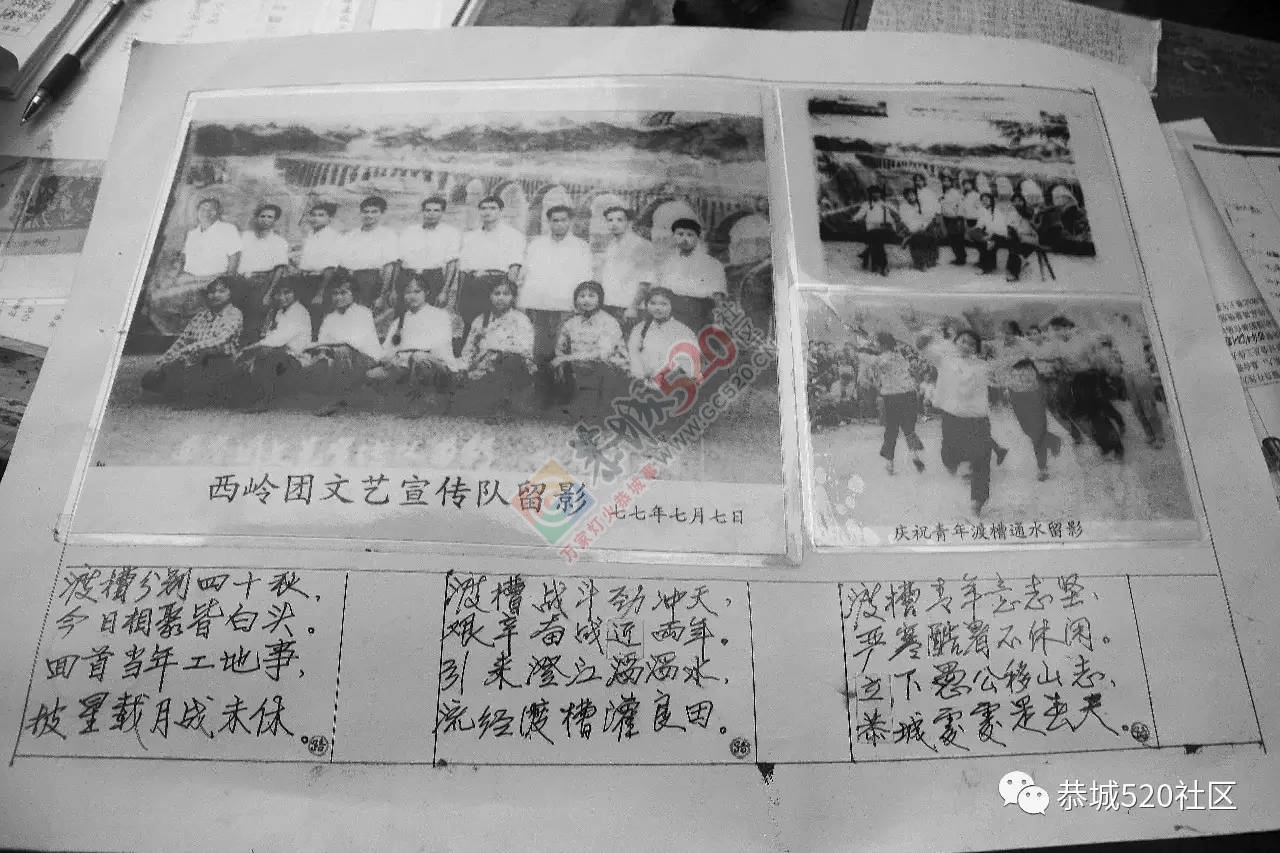 西岭团文艺宣传队留影
七七年七月七日
庆祝青年渡槽通水留影
渡槽分别四十秋，
今日相聚皆白头。
回首当年工地事，
披星载月战未休。
渡槽战斗劲冲天，
艰辛奋战近两年。
引来澄江滔滔水，
流经渡槽灌良田。
渡槽青年意志坚，
严寒酷暑不休闲。
立下愚公移山志，
恭城处处是
恭城520
www.GC520.cn
万家灯火恭城事
恭城520社区